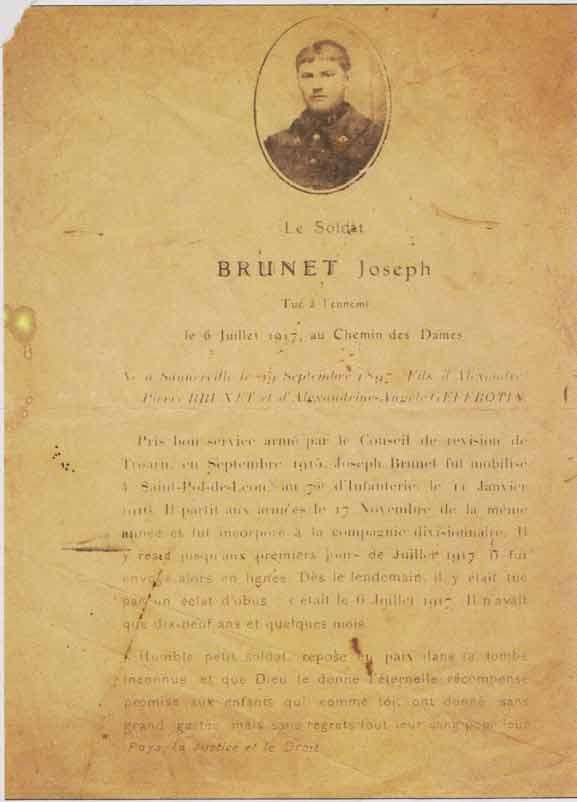 Le Soldat
BRUNET Joseph
Tué à l'ennemi
le 6 Juillet 1917, au Chemin des Dames
Né à Sannerville le 19 Septembre 1897. Fils d'Alexandre-
Pierre BRUNET et d'Alexandrine-Angèle
Pris bon service armé par le Conseil de revision de
Troarn, en Septembre 1915, Joseph Brunet fut mobilisé
à Saint-Pol-de-Léon, au d'Infanterie, le 11 Janvier
1916. Il partit aux armées le 17 Novembre de la même
année et fut incorporé à la compagnie divisionnaire. Il
y resta jusqu'aux premiers jours de Juillet 1917. Il fut
envoyé alors en lignes. Dès le lendemain, il y était tué
par un éclat d'obus : c'était le 6 Juillet 1917. Il n'avait
que dix-neuf ans et quelques mois.
Humble petit soldat, repose en paix dans ta tombe
inconnue et que Dieu te donne l'éternelle récompense
promise aux enfants qui, comme toi, ont donné sans
grand gestes mais sans regrets tout leur sang pour leur
Pays, la Justice et le Droit.